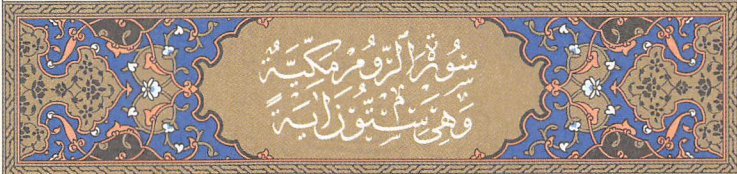 سُورَةُ الرُّومِ مَكِّيَّةٌ
وَهِيَ سِتُّونَ آيَةً